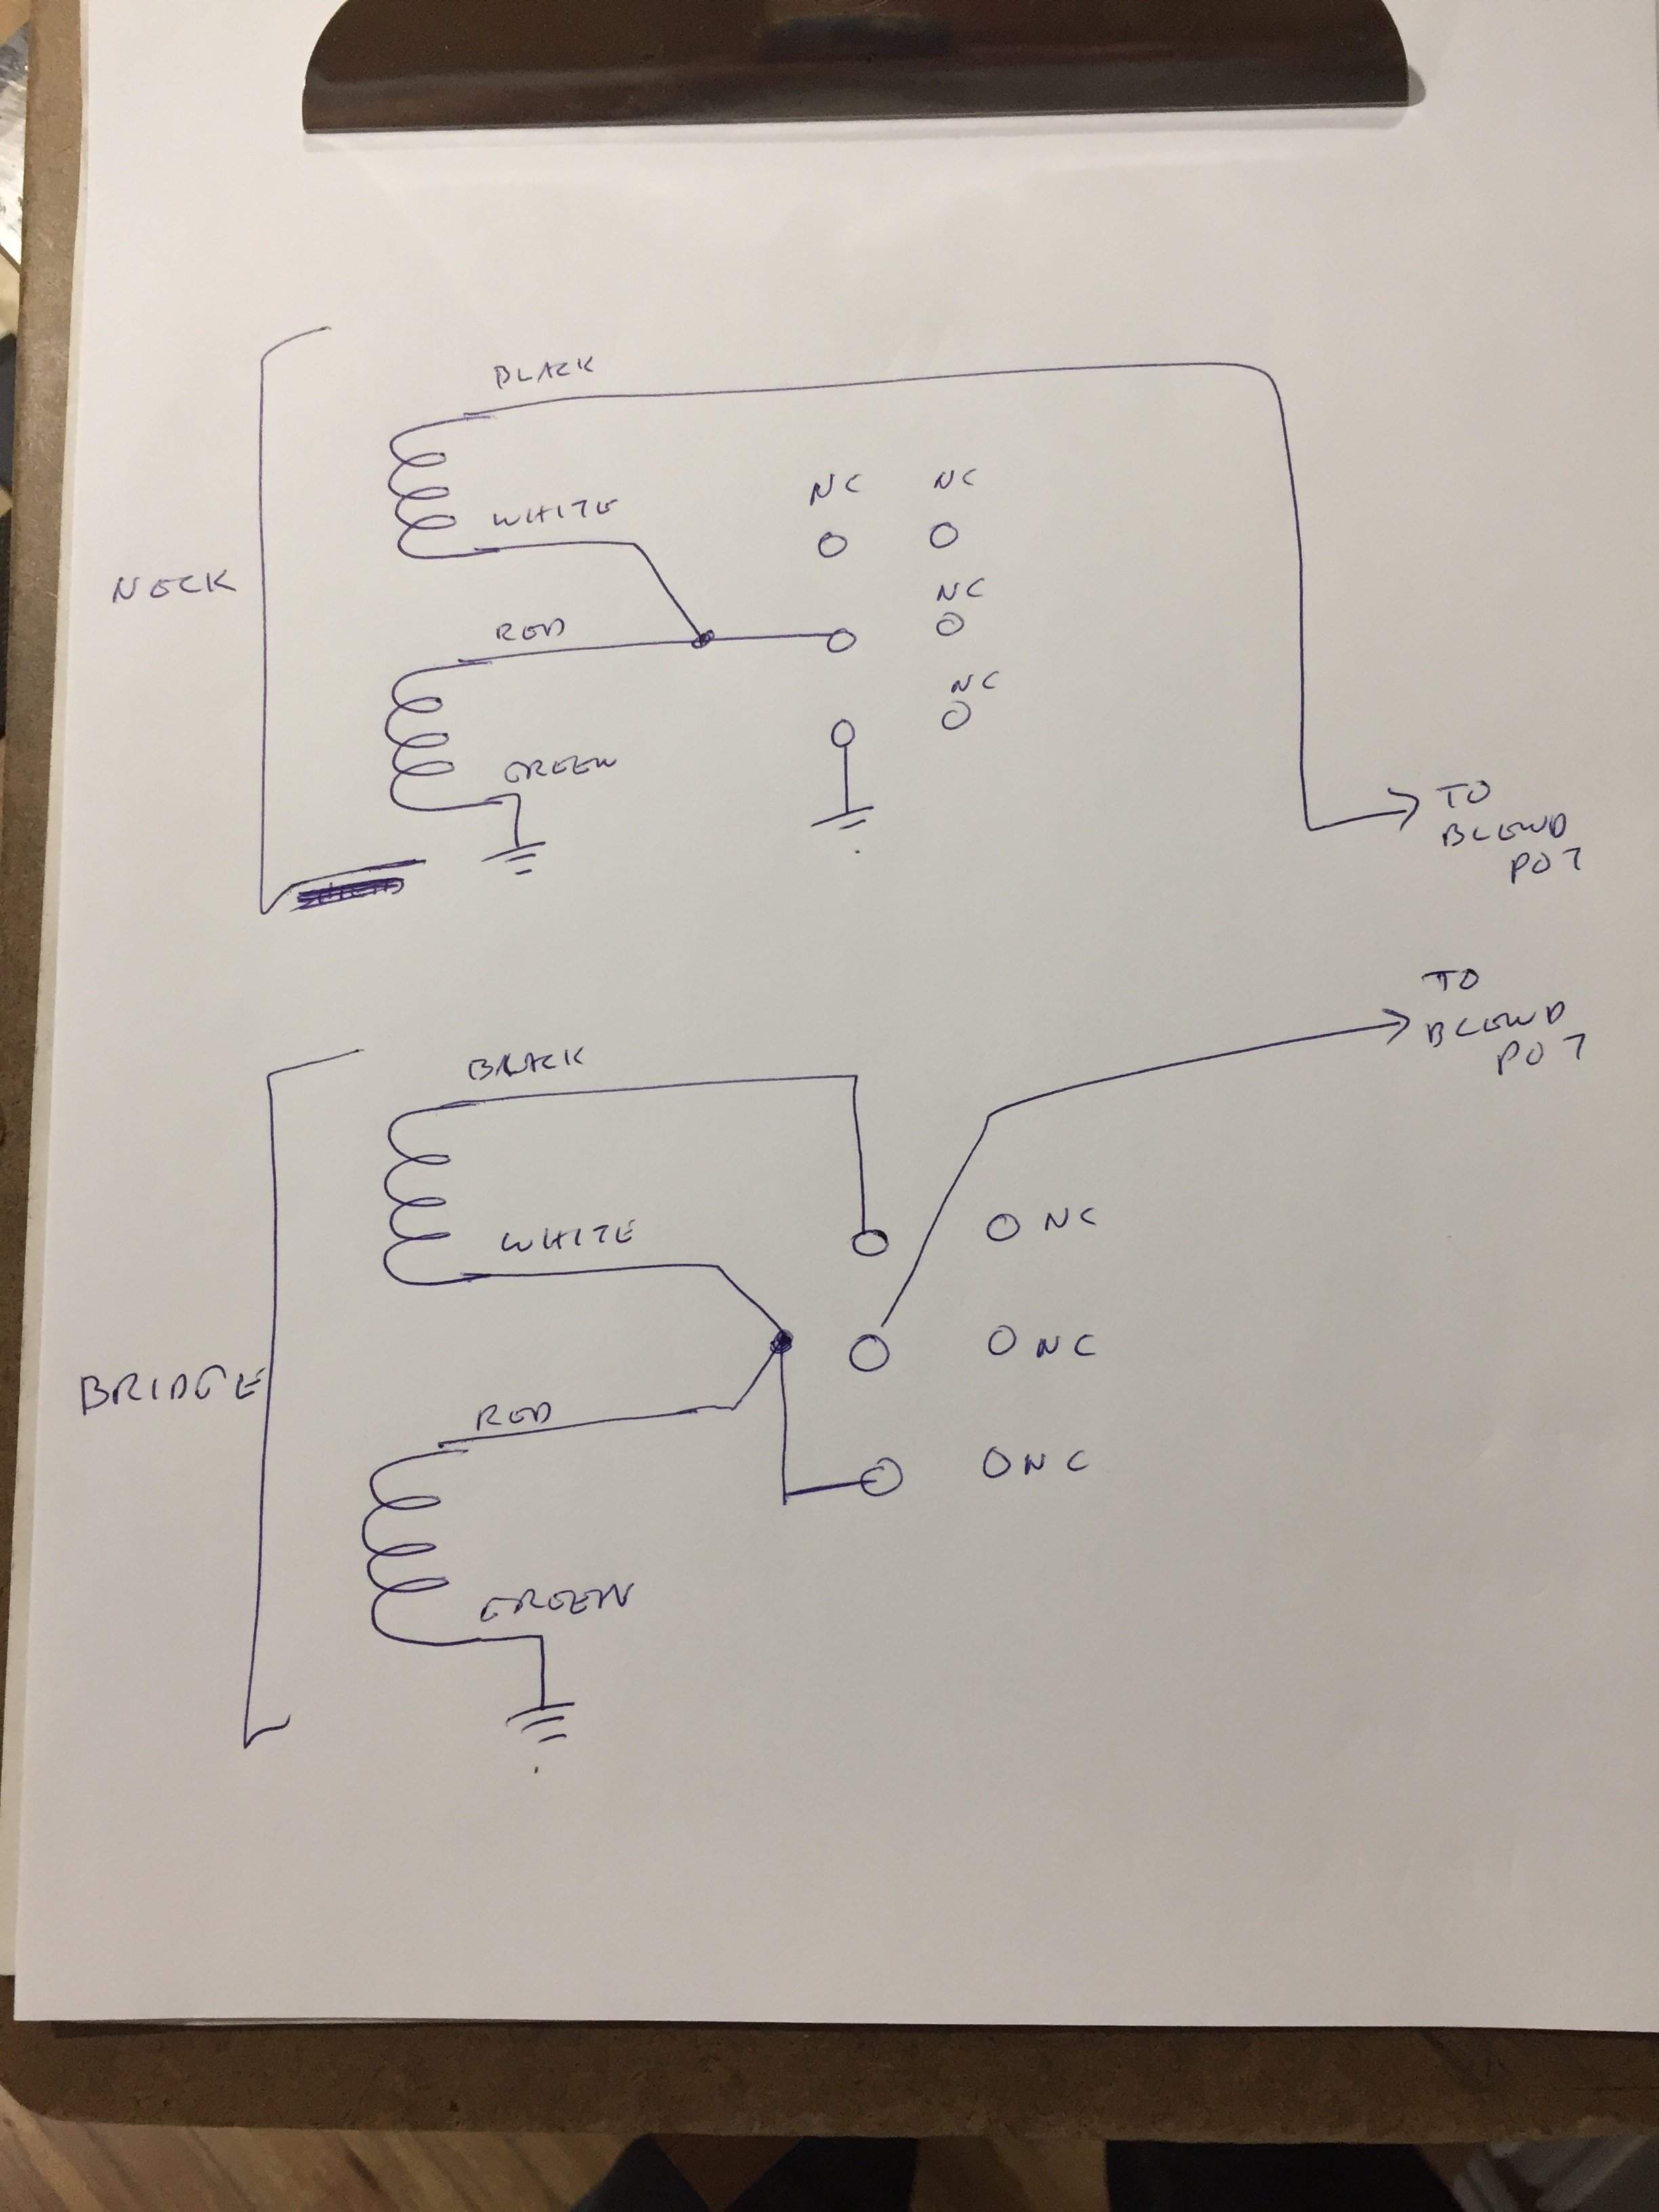 BLACK
NC NC
WHITE
NC
NECK
RED
NC
GREEN
TO
BLEND
POT
TO
BLEND
POT
BLACK
NC
WHITE
NC
BRIDGE
RED
NC
GREEN